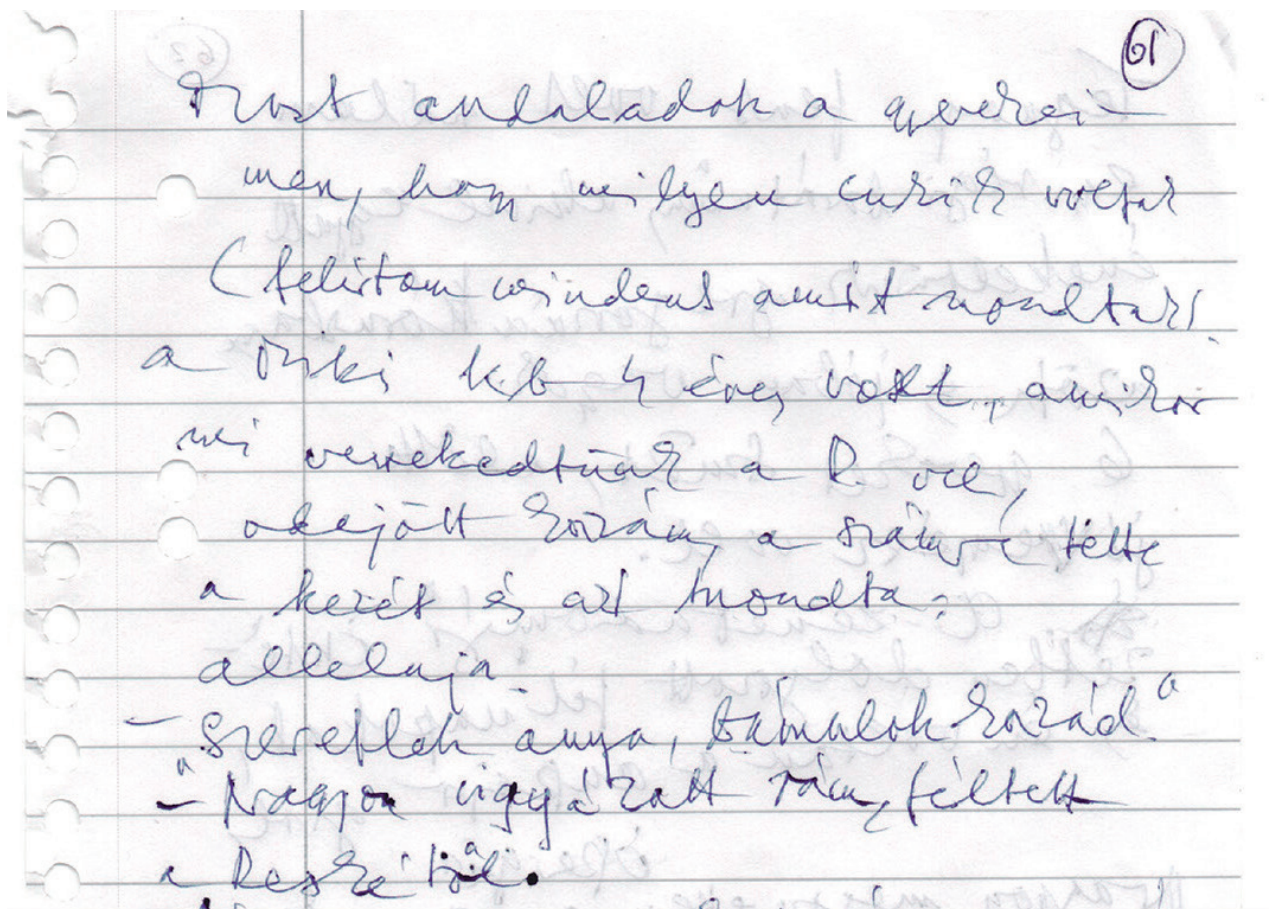 61
Most andalodok a gyerekei-
men, hogy milyen cukik voltak
(felírtam mindent amit mondtak)
a Öcski kb 4 éves volt, amikor
mi verekedtünk a R. vel,
odajött hozzám, a számra tette
a kezét és azt mondta:
alleluja
– Szeretlek anya, bámulok hozzád"
"– Nagyon vigyázott rám, féltett
a Reszkétől.